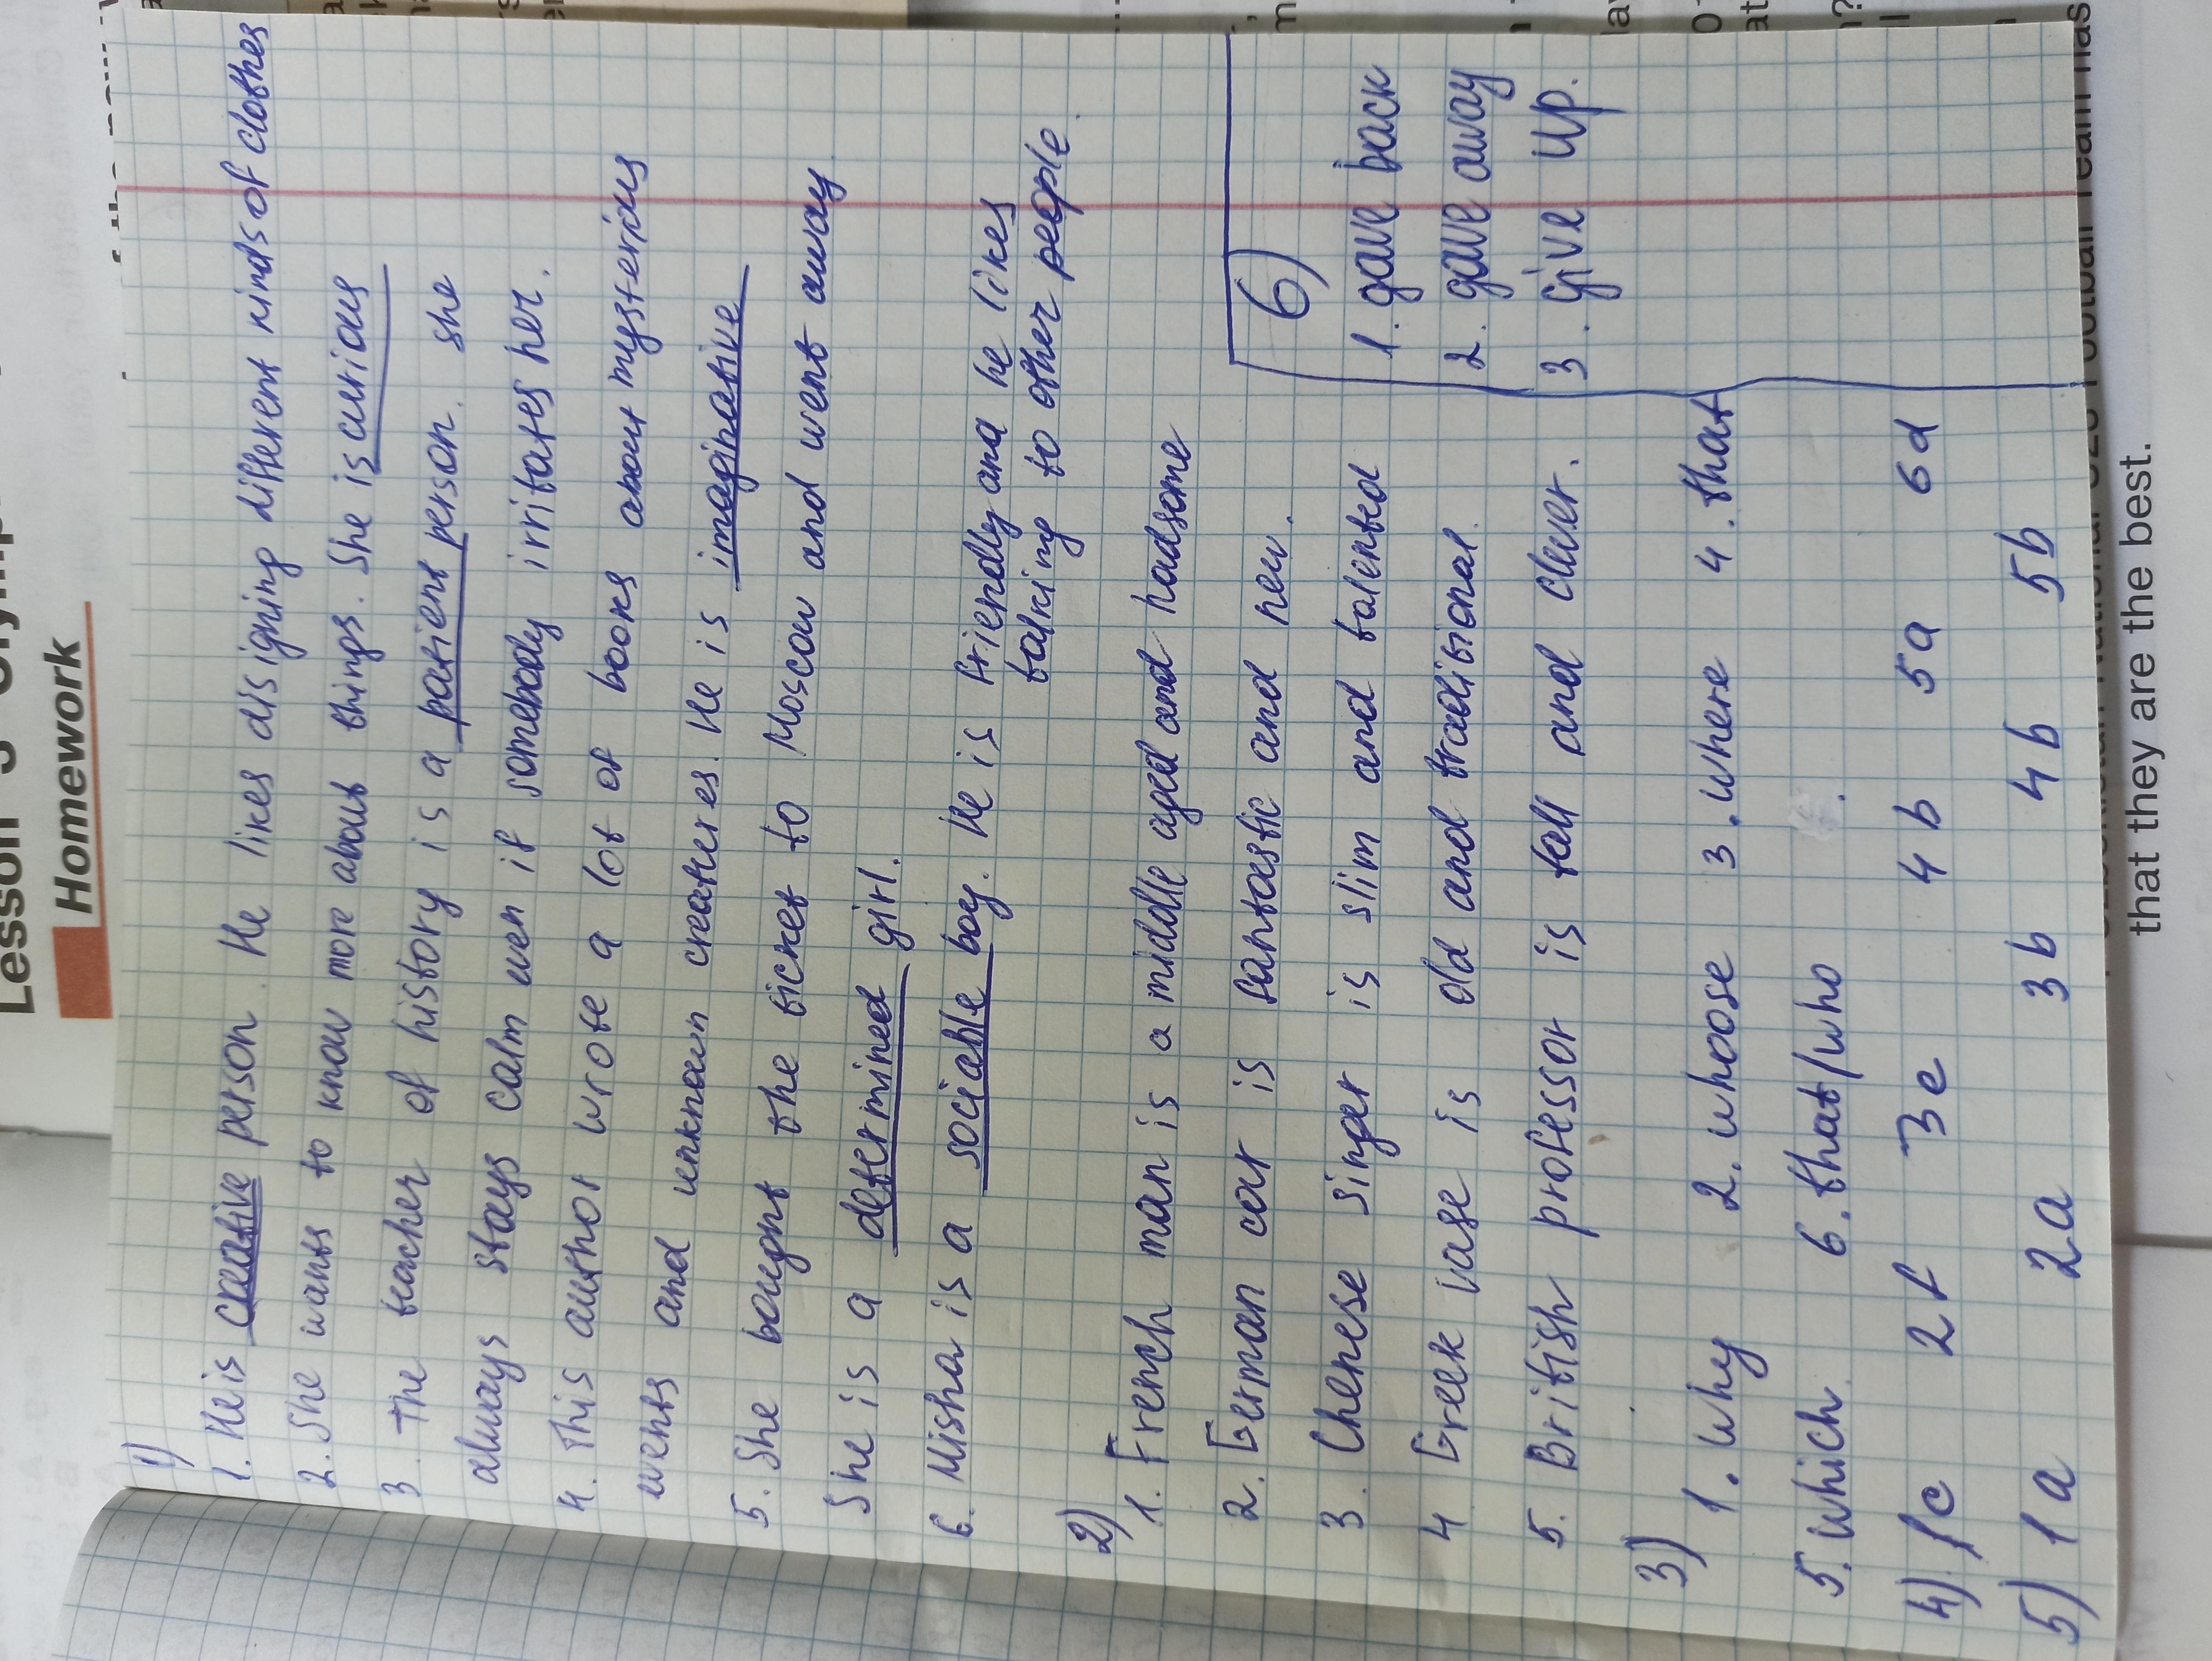 Homework
1)
1. He is creative person. He likes disigning different kinds of clothes
2. She wants to know more about things. She is curious
3. The teacher of history is a patient person. she
always stays calm even if somebody irritates her.
4. This author wrote a lot of books about mysterius
events and unknown creatures. He is imaginative
5. She bought the ticket to Moscow and went away
She is a determined girl.
6. Misha is a sociable boy. He is friendly and he likes
talking to other people.
2)
1. French man is a middle aged and hadsome
2. German car is fantastic and new.
3. Chenese singer is slim and talented
4 Greek vase is old and traditional.
5. British professor is tall and clever.
3)
1. why 2. whoose 3. where 4. that
5. which 6. that/who
4) 1c 2f 3e 4b 5a 6d
5) 1a 2a 3b 4b 5b
6)
1. gave back
2. gave away
3. give up.
that they are the best.